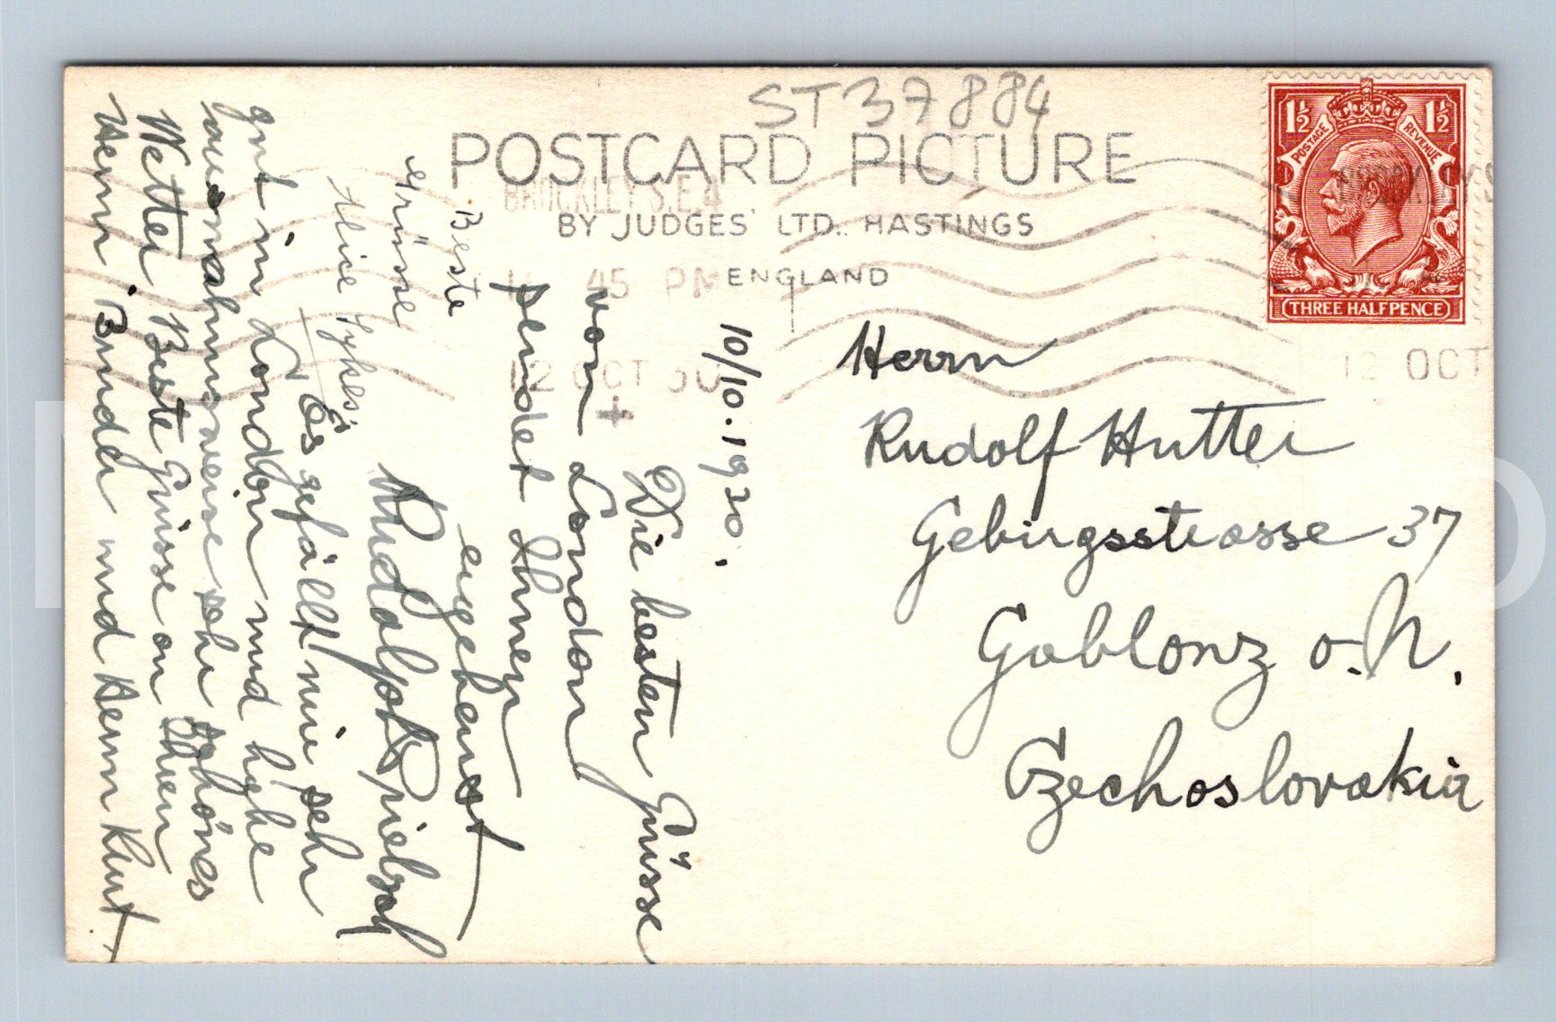 ST37884
POSTCARD PICTURE
BY JUDGES' LTD., HASTINGS
ENGLAND
BROCKLEY S.E.4
45 PM
12 OCT 30
1½ 1½
POSTAGE REVENUE
THREE HALFPENCE
12 OCT
Herrn
Rudolf Hutter
Gebirgsstrasse 37
Gablonz a. N.
Czechoslovakia
10/10.1930.
Die besten Grüsse
von London
sendet Ihnen
ergebenst
Rudolph
Es gefällt mir sehr
gut in London und habe
ausnahmsweise sehr schönes
Wetter. Beste Grüsse an Ihren
Herrn Bruder und Herrn Kurt
Beste
Grüsse
Alice Sykes